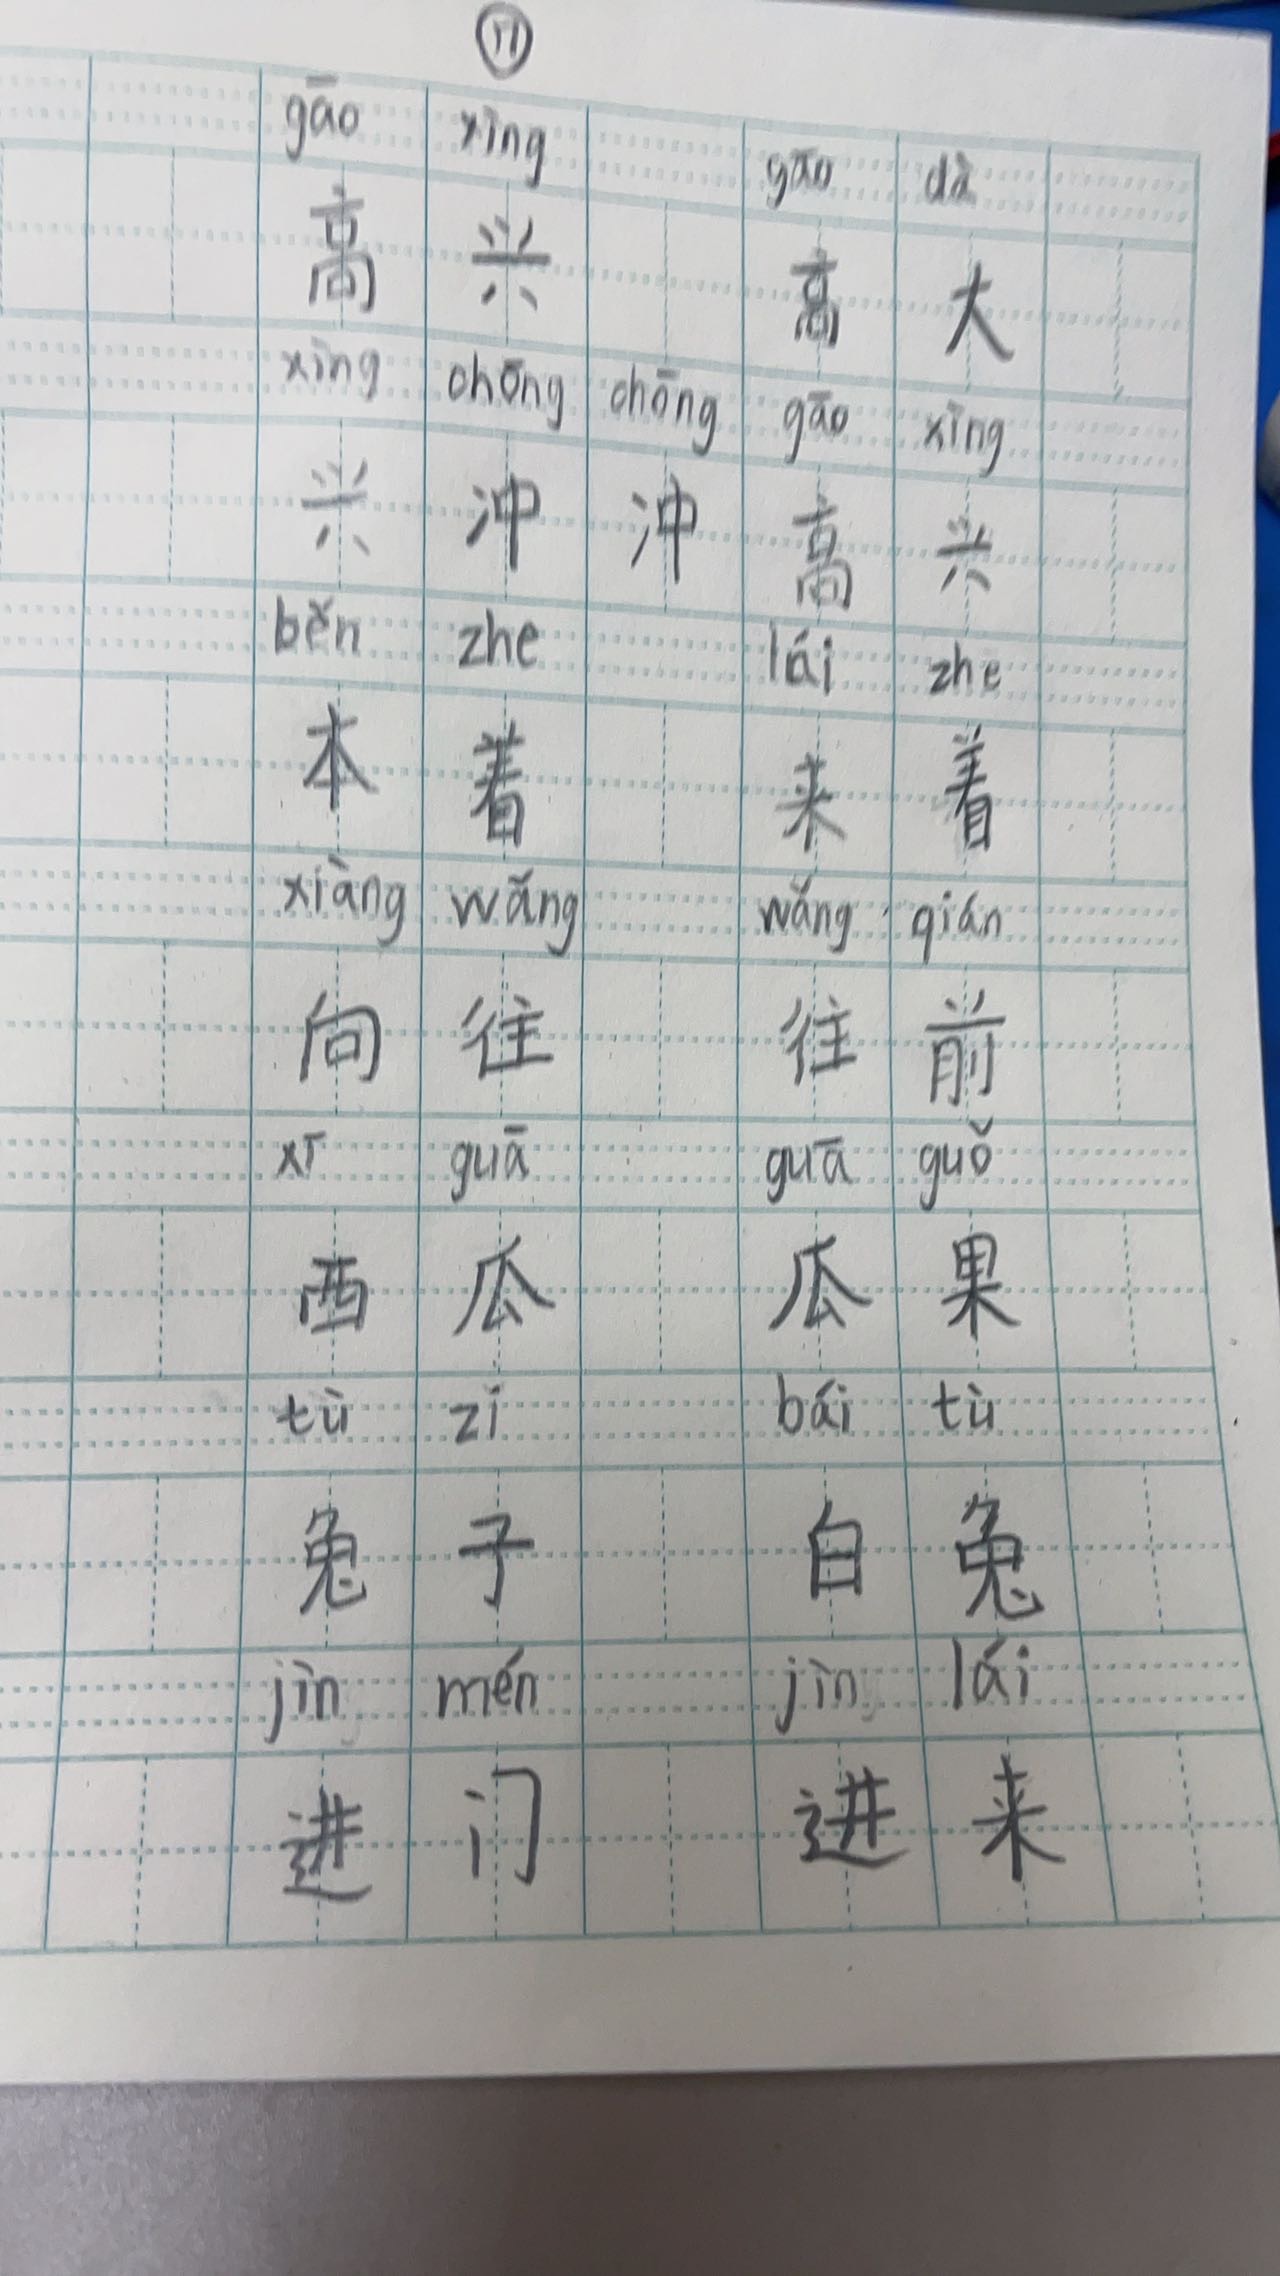 gāo xìng gāo dà
高 兴 高 大
xìng chōng chōng gāo xìng
兴 冲 冲 高 兴
běn zhe lái zhe
本 着 来 着
xiàng wǎng wǎng qián
向 往 往 前
xī guā guā guǒ
西 瓜 瓜 果
tù zi bái tù
兔 子 白 兔
jìn mén jìn lái
进 门 进 来